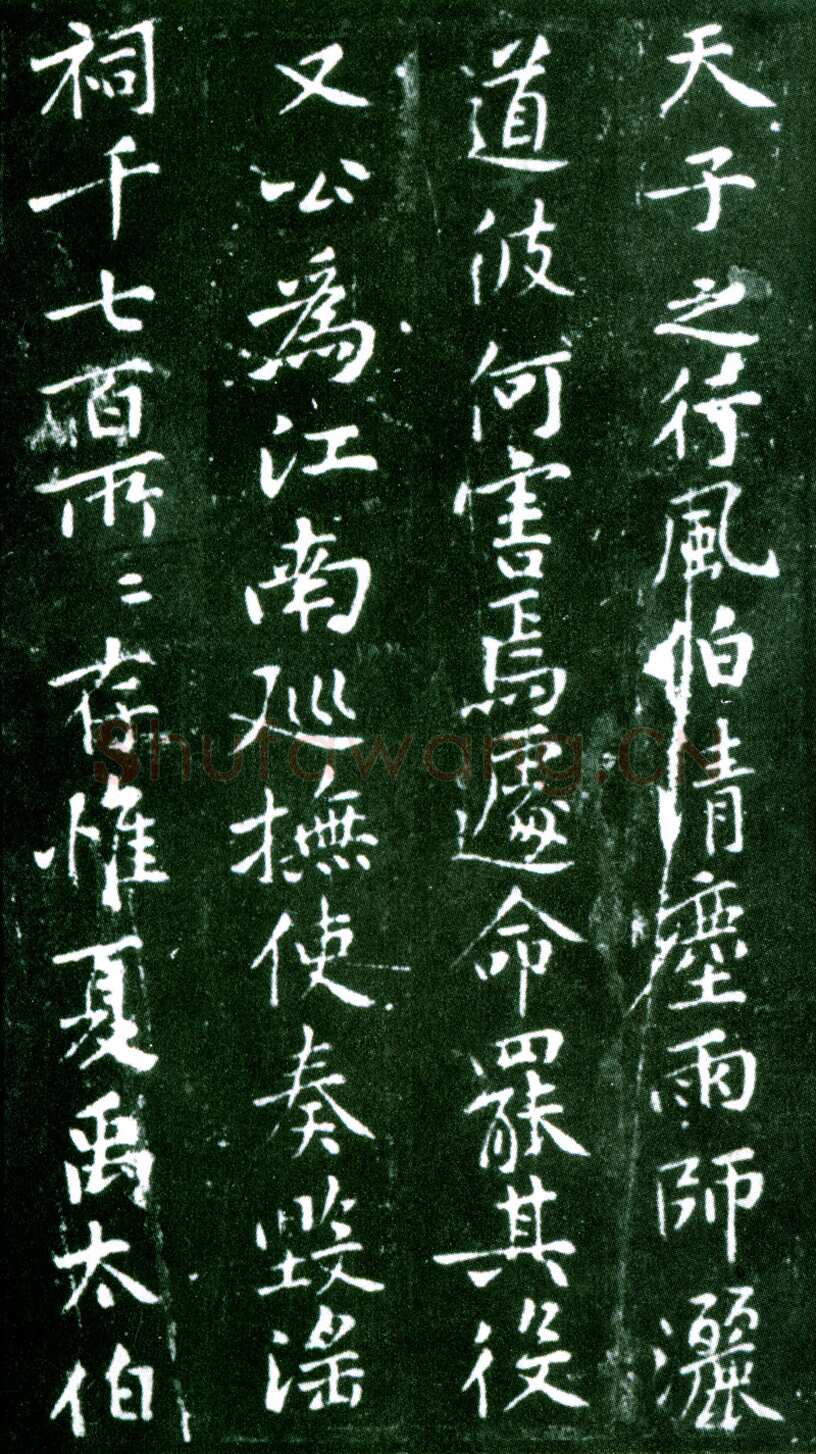 天子之行風伯清塵雨師灑
道彼何害焉遽命罷其役
又公爲江南廵撫使奏毀淫
祠千七百所〻存惟夏禹太伯
Shufawang.CN